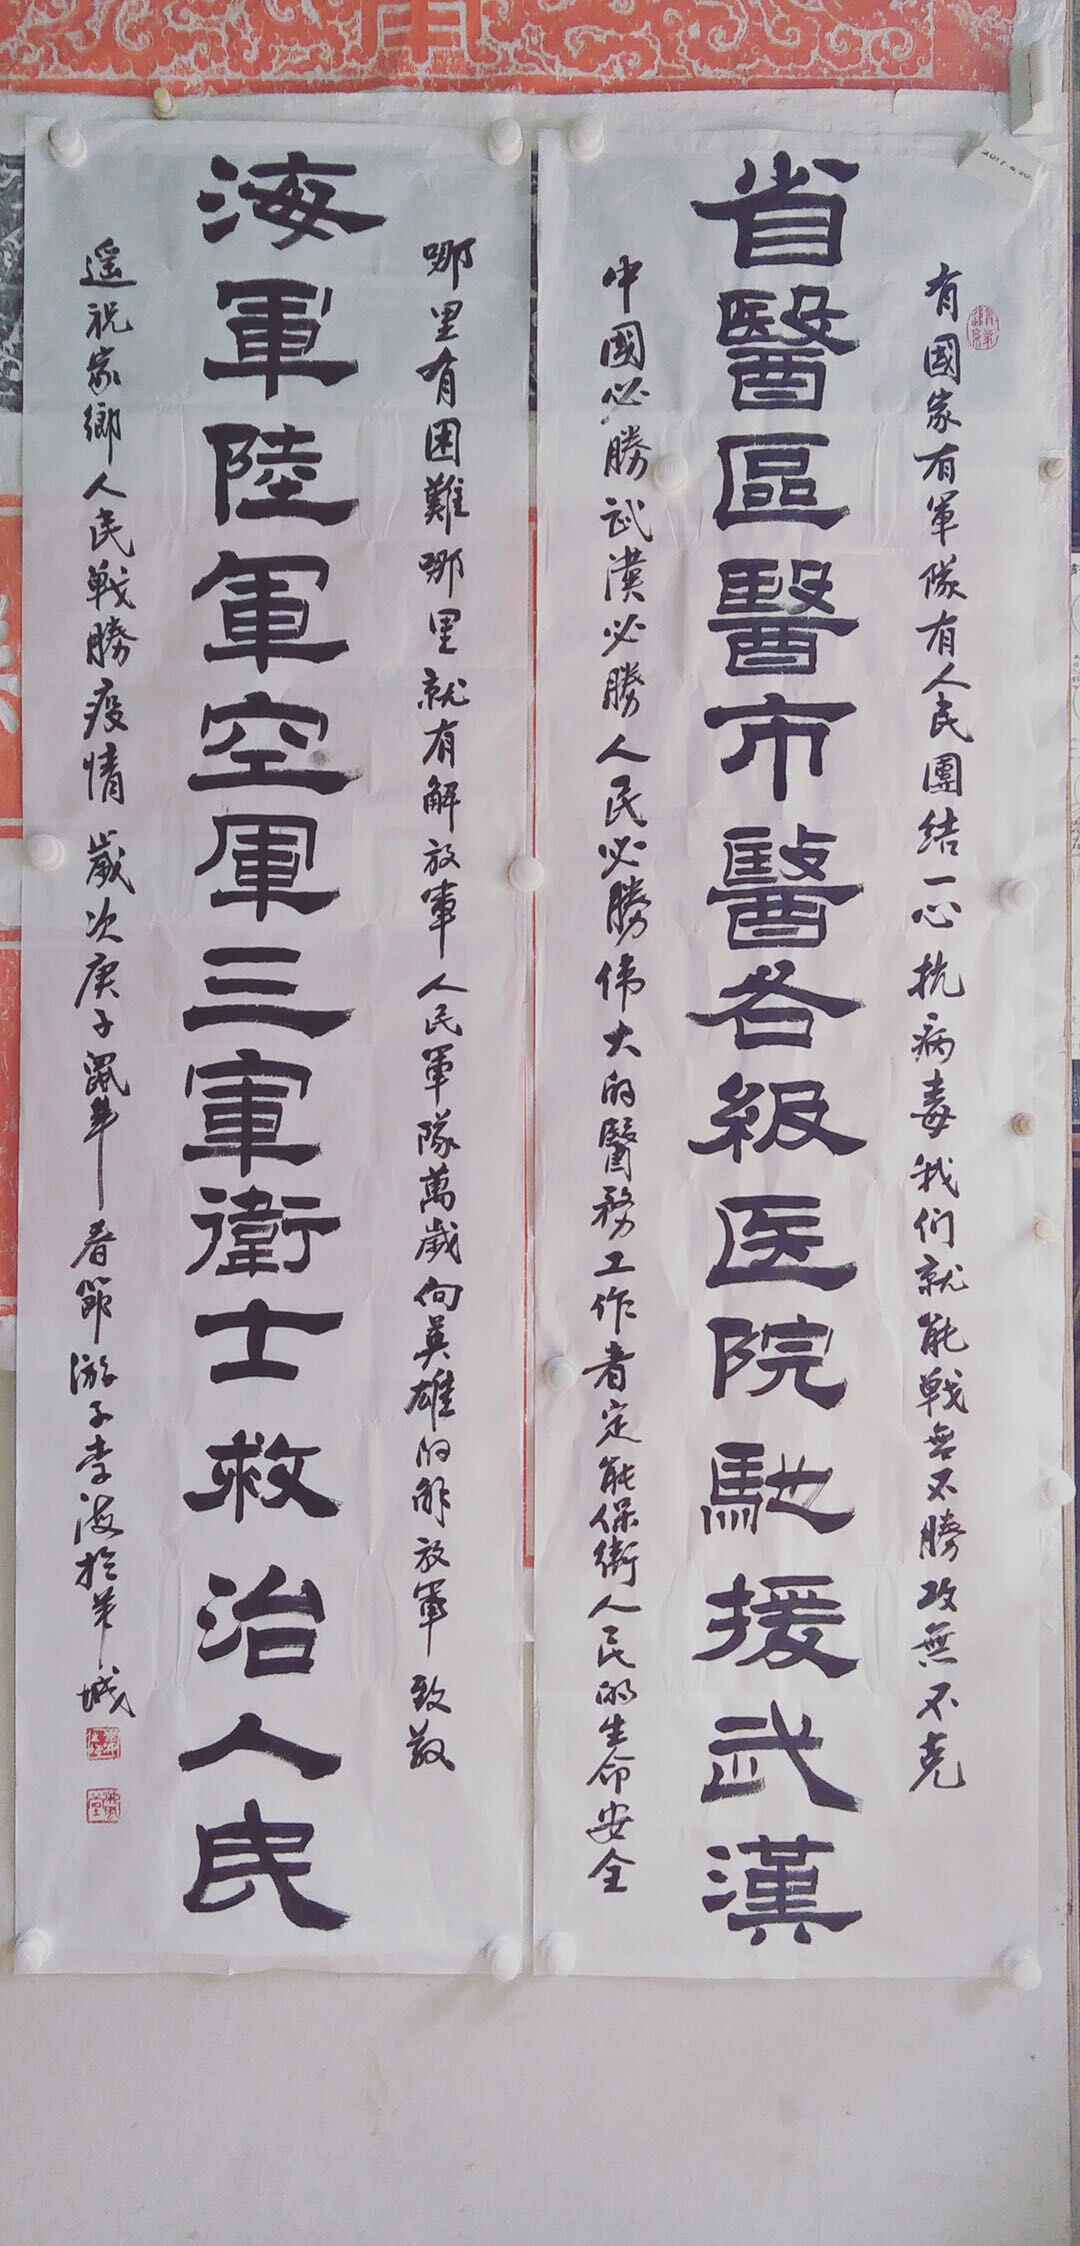 有國家有軍隊有人民團结一心抗病毒我们就能戰無不勝攻無不克
省醫區醫市醫各級医院馳援武漢
中國必勝武漢必勝人民必勝伟大的醫務工作者定能保衛人民的生命安全
哪里有困難哪里就有解放軍人民軍隊萬歲向英雄的解放軍致敬
海軍陸軍空軍三軍衛士救治人民
遥祝家鄉人民戰勝疫情歲次庚子鼠年春節游子李海於羊城
2017.4.20